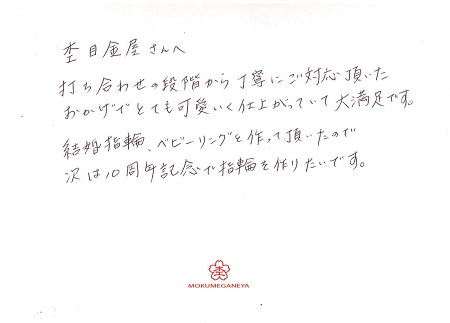 杢目金屋さんへ
打ち合わせの段階から丁寧にご対応頂いた
おかげでとても可愛いく仕上がっていて大満足です。
結婚指輪、ベビーリングと作って頂いたので
次は10周年記念で指輪を作りたいです。
杢
MOKUMEGANEYA